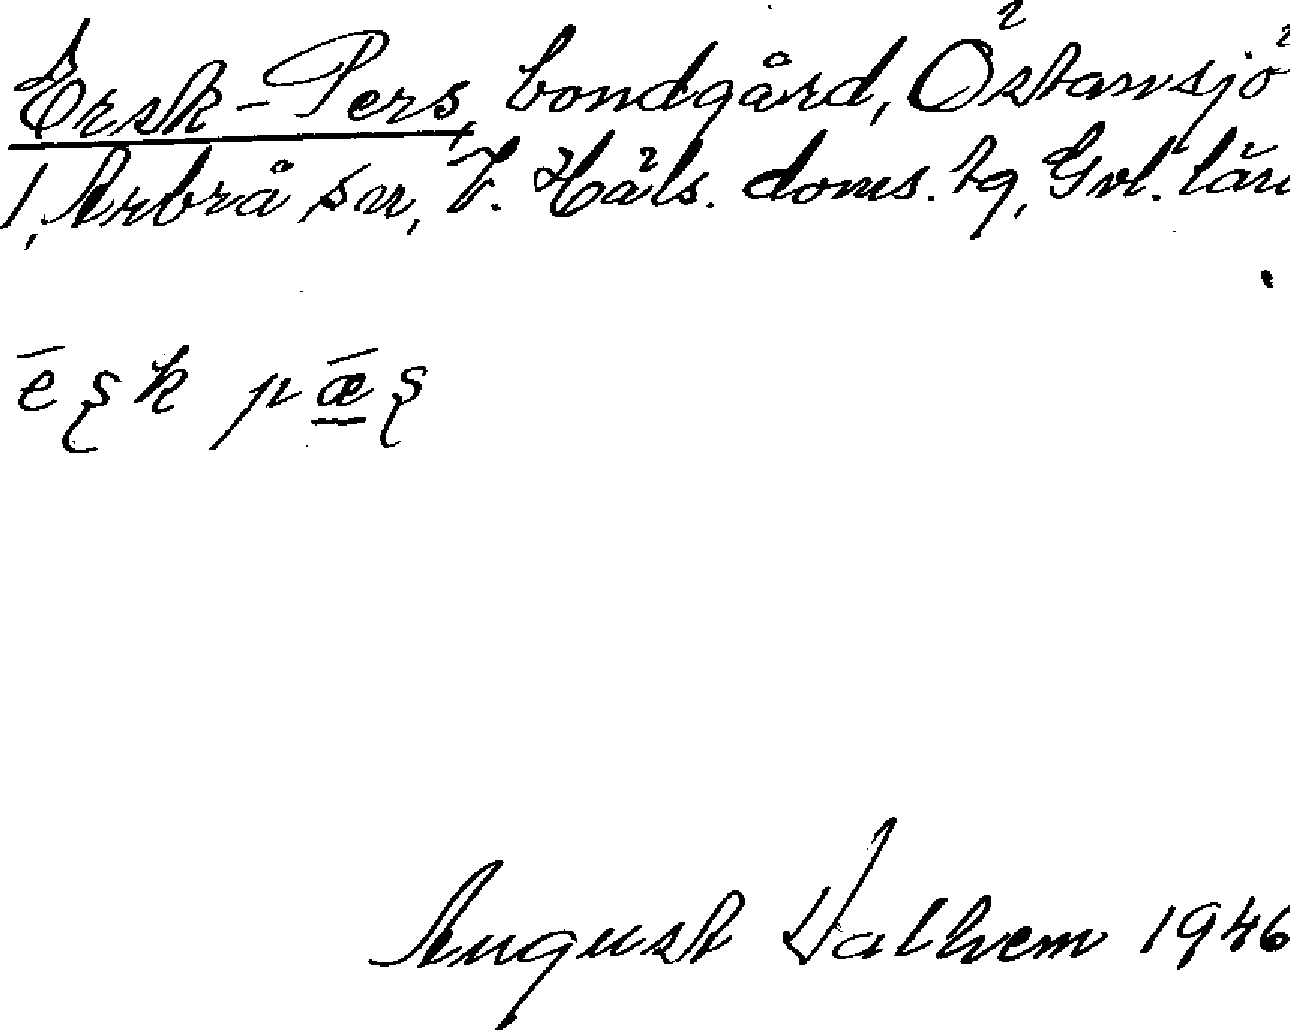 Ersk-Pers, bondgård, Östansjö
1, Arbrå sn, V. Häls. doms. tg, Gvl. län
.
ēʂk pǣʂ
August Valhem 1946